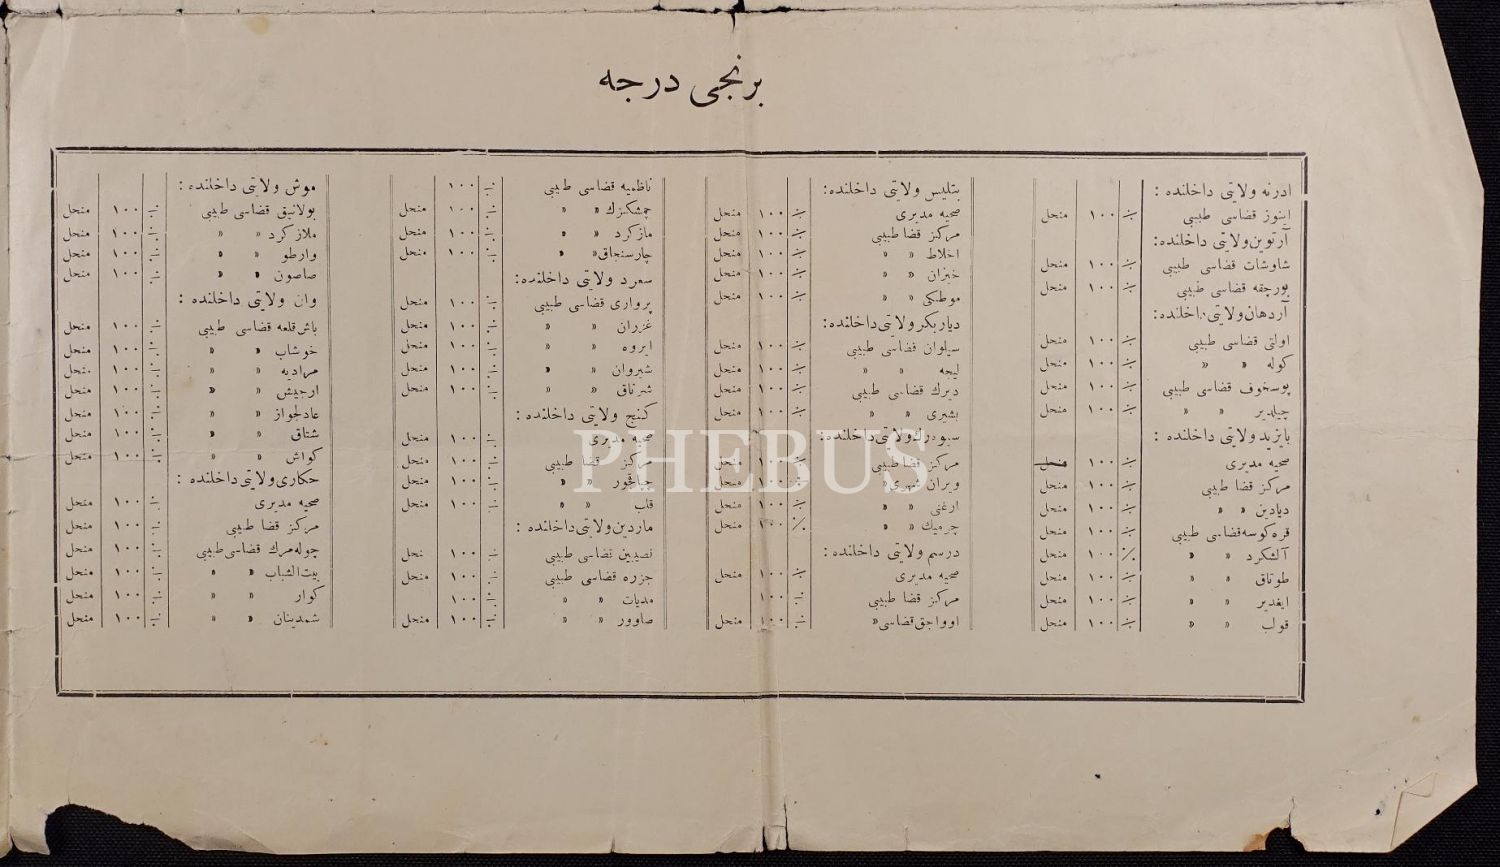 برنجی درجه
ادرنه ولایتی داخلنده :
اینوز قضاسی طبیبی ٪ ١٠٠ منحل
آرتوین ولایتی داخلنده :
شاوشات قضاسی طبیبی ٪ ١٠٠ منحل
بورچقه قضاسی طبیبی ٪ ١٠٠ منحل
آردهان ولایتی داخلنده :
اولتی قضاسی طبیبی ٪ ١٠٠ منحل
کوله » » ٪ ١٠٠ منحل
پوسخوف قضاسی طبیبی ٪ ١٠٠ منحل
چیلدیر » » ٪ ١٠٠ منحل
بایزید ولایتی داخلنده :
صحیه مدیری ٪ ١٠٠ منحل
مرکز قضا طبیبی ٪ ١٠٠ منحل
دیادین » » ٪ ١٠٠ منحل
قره کوسه قضاسی طبیبی ٪ ١٠٠ منحل
آلشکرد » » ٪ ١٠٠ منحل
طوتاق » » ٪ ١٠٠ منحل
ایغدیر » » ٪ ١٠٠ منحل
قولب » » ٪ ١٠٠ منحل
بتلیس ولایتی داخلنده :
صحیه مدیری ٪ ١٠٠ منحل
مرکز قضا طبیبی ٪ ١٠٠
اخلاط » » ٪ ١٠٠ منحل
خیزان » » ٪ ١٠٠ منحل
موطکی » » ٪ ١٠٠ منحل
دیاربکر ولایتی داخلنده :
سیلوان قضاسی طبیبی ٪ ١٠٠ منحل
لیجه » » ٪ ١٠٠ منحل
دیرك قضاسی طبیبی ٪ ١٠٠ منحل
بشیری » » ٪ ١٠٠ منحل
سیوه رك ولایتی داخلنده :
مرکز قضا طبیبی ٪ ١٠٠ منحل
ویران شهری » ٪ ١٠٠ منحل
ارغنی » » ٪ ١٠٠ منحل
چرمیك » » ٪ ١٠٠ منحل
درسم ولایتی داخلنده :
صحیه مدیری ٪ ١٠٠ منحل
مرکز قضا طبیبی ٪ ١٠٠
اوواجق قضاسی » ٪ ١٠٠ منحل
ناظمیه قضاسی طبیبی ٪ ١٠٠
چمشکزك » » ٪ ١٠٠ منحل
مازکرد » » ٪ ١٠٠ منحل
چارسنجاق » » ٪ ١٠٠ منحل
سعرد ولایتی داخلنده :
پرواری قضاسی طبیبی ٪ ١٠٠ منحل
غرزان » » ٪ ١٠٠ منحل
ایروه » » ٪ ١٠٠ منحل
شیروان » » ٪ ١٠٠ منحل
شرناق » » ٪ ١٠٠ منحل
کنج ولایتی داخلنده :
صحیه مدیری ٪ ١٠٠ منحل
مرکز قضا طبیبی ٪ ١٠٠ منحل
چپاقچور » » ٪ ١٠٠ منحل
قلب » » ٪ ١٠٠ منحل
ماردین ولایتی داخلنده :
نصیبین قضاسی طبیبی ٪ ١٠٠ منحل
جزره قضاسی طبیبی ٪ ١٠٠ منحل
مدیات » » ٪ ١٠٠
صاوور » » ٪ ١٠٠ منحل
موش ولایتی داخلنده :
بولانیق قضاسی طبیبی ٪ ١٠٠ منحل
ملازکرد » » ٪ ١٠٠ منحل
وارطو » » ٪ ١٠٠ منحل
صاصون » » ٪ ١٠٠ منحل
وان ولایتی داخلنده :
باش قلعه قضاسی طبیبی ٪ ١٠٠ منحل
خوشاب » » ٪ ١٠٠ منحل
مرادیه » » ٪ ١٠٠ منحل
ارجیش » » ٪ ١٠٠ منحل
عادلجواز » » ٪ ١٠٠ منحل
شتاق » » ٪ ١٠٠ منحل
کواش » » ٪ ١٠٠ منحل
حکاری ولایتی داخلنده :
صحیه مدیری ٪ ١٠٠ منحل
مرکز قضا طبیبی ٪ ١٠٠ منحل
چوله مرك قضاسی طبیبی ٪ ١٠٠ منحل
بیت الشباب » » ٪ ١٠٠ منحل
کوار » » ٪ ١٠٠ منحل
شمدینان » » ٪ ١٠٠ منحل
PHEBUS